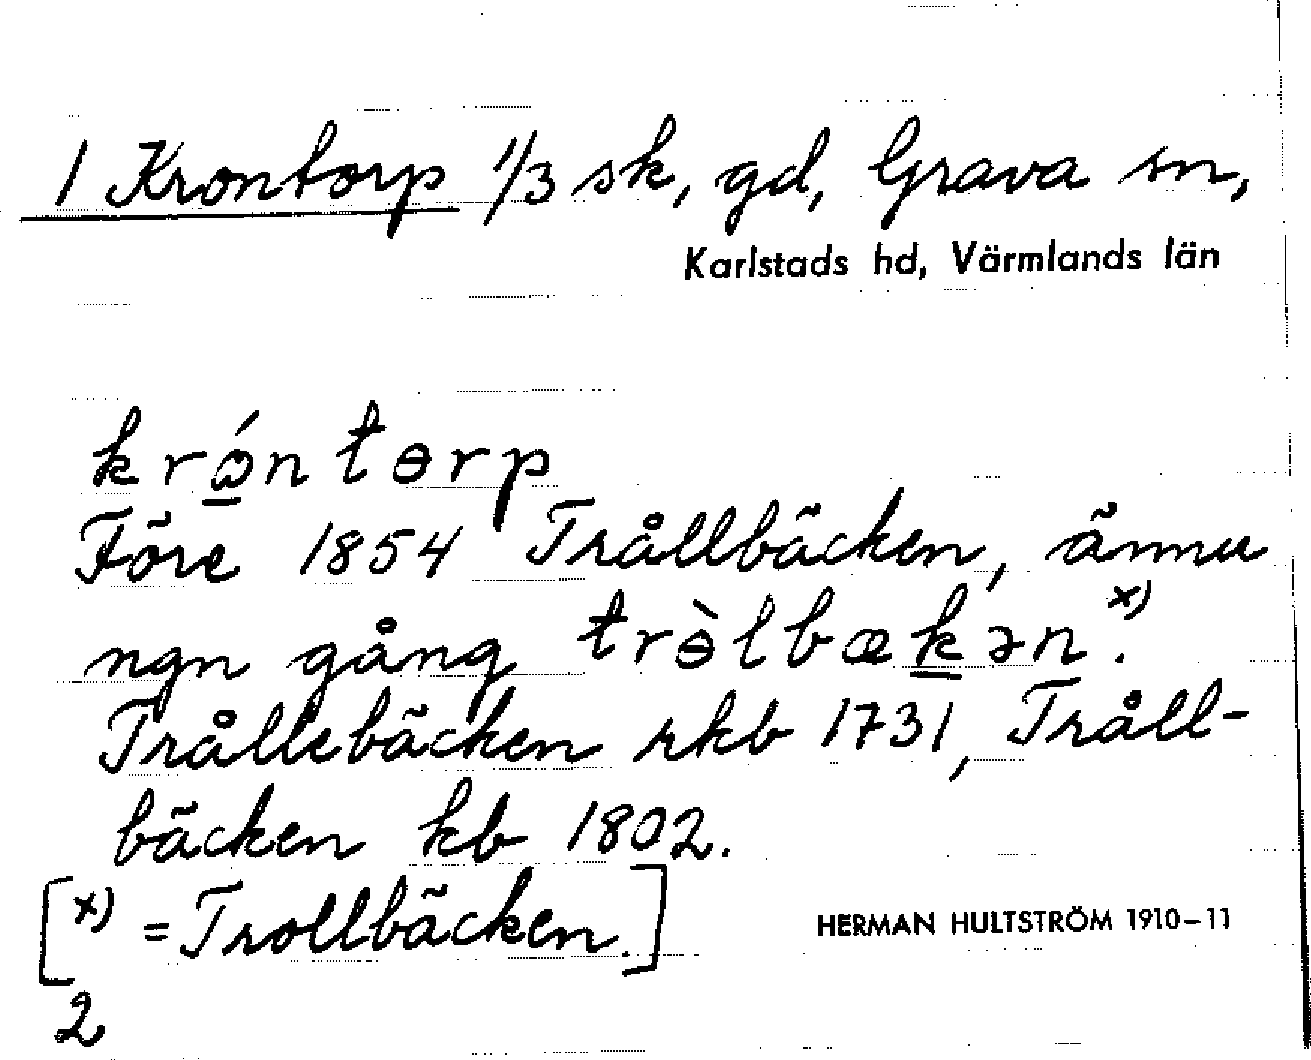 1 Krontorp 1/3 sk, gd, Grava sn,
Karlstads hd, Värmlands län
krώ̲ntɵrp
Före 1854 Trållbäcken, ännu
ngn gång trɵ̀lbæk̲ən.x)
Trållebäcken rkb 1731, Tråll-
bäcken kb 1802.
[x) = Trollbäcken.]
HERMAN HULTSTRÖM 1910–11
2